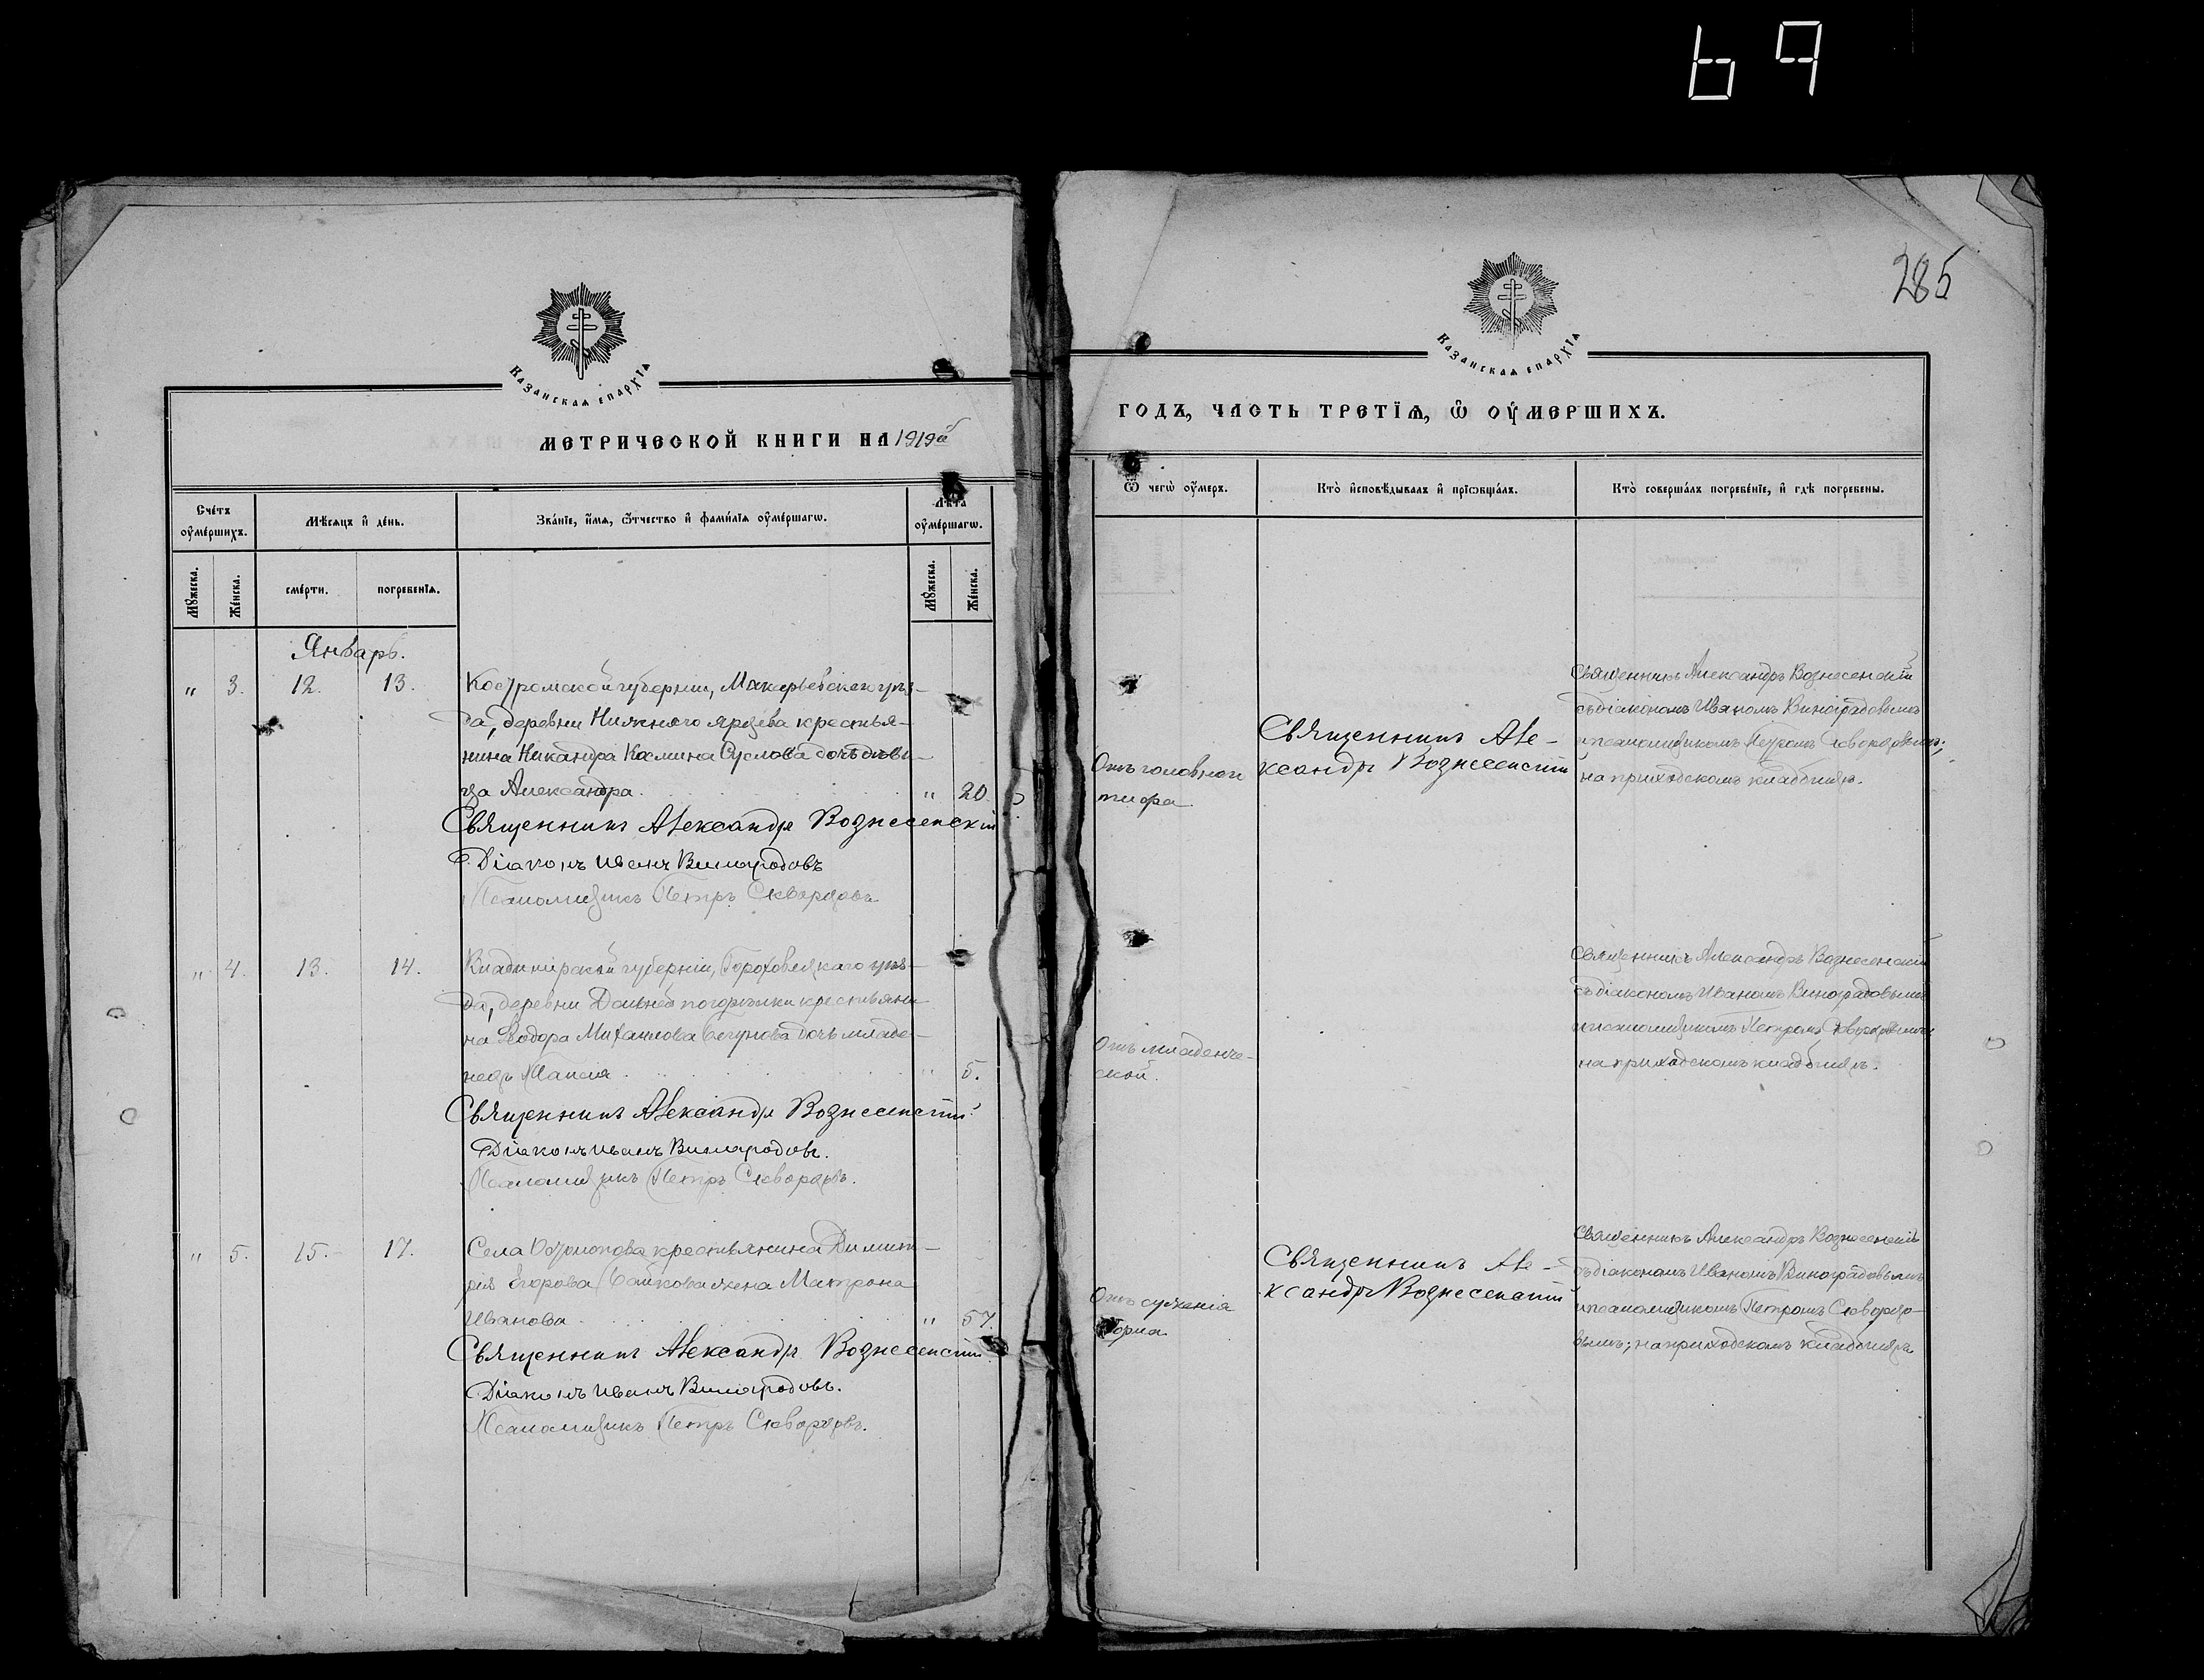 69
285
Казанская епархїѧ
Казанская епархїѧ
МЕТРИЧЕСКОЙ КНИГИ НА 1919й
ГОДЪ, ЧАСТЬ ТРЕТЇѦ, Ѿ ОУ҆МЕРШИХЪ.
Сче́тъ оу҆ме́ршихъ.
Мѣ́сѧцъ и҆ де́нь.
Зва́нїе, и҆́мѧ, ѻ҆́тчество и҆ фами́лїѧ оу҆ме́ршагѡ.
Лѣ́та оу҆ме́ршагѡ.
Ѿ чегѡ̀ оу҆́меръ.
Кто̀ и҆сповѣ́дывалъ и҆ прїѡбща́лъ.
Кто̀ соверша́лъ погребе́нїе, и҆ гдѣ̀ погребены.
Мꙋ́жеска.
Же́нска.
сме́рти.
погребе́нїѧ.
Мꙋ́жеска.
Же́нска.
Январь.
" 3. 12. 13.
Костромской губернiи, Макарьевскаго уѣз-
да, деревни Нижняго крестья-
нина Никандра Космина Суслова дочь дѣви-
ца Александра. " 20.
Священникъ Александръ Вознесенскій
Діаконъ Иванъ Виноградовъ
Псаломщикъ Петръ Скворцовъ
Отъ головного
тифа
Священникъ Але-
ксандръ Вознесенскій
Священникъ Александръ Вознесенскій
съ діакономъ Иваномъ Виноградовымъ
и псаломщикомъ Петромъ Скворцовымъ;
на приходскомъ кладбищѣ.
" 4. 13. 14.
Владимірской губерніи, Гороховецкаго уѣз-
да, деревни крестьяни-
на Ѳеодора Михаилова дочь младе-
нецъ " 5.
Священникъ Александръ Вознесенскій
Діаконъ Иванъ Виноградовъ.
Псаломщикъ Петръ Скворцовъ.
Отъ младенче-
ской.
Священникъ Александръ Вознесенскій
съ діакономъ Иваномъ Виноградовымъ
и псаломщикомъ Петромъ Скворцовымъ
на приходскомъ кладбищѣ.
" 5. 15. 17.
Села крестьянина Димит-
рія Егорова Байкова жена Матрона
Иванова " 57.
Священникъ Александръ Вознесенскій
Діаконъ Иванъ Виноградовъ.
Псаломщикъ Петръ Скворцовъ.
Отъ суженія
горла.
Священникъ Але-
ксандръ Вознесенскій
Священникъ Александръ Вознесенскій
съ діакономъ Иваномъ Виноградовымъ
и псаломщикомъ Петромъ Скворцо-
вымъ; на приходскомъ кладбищѣ